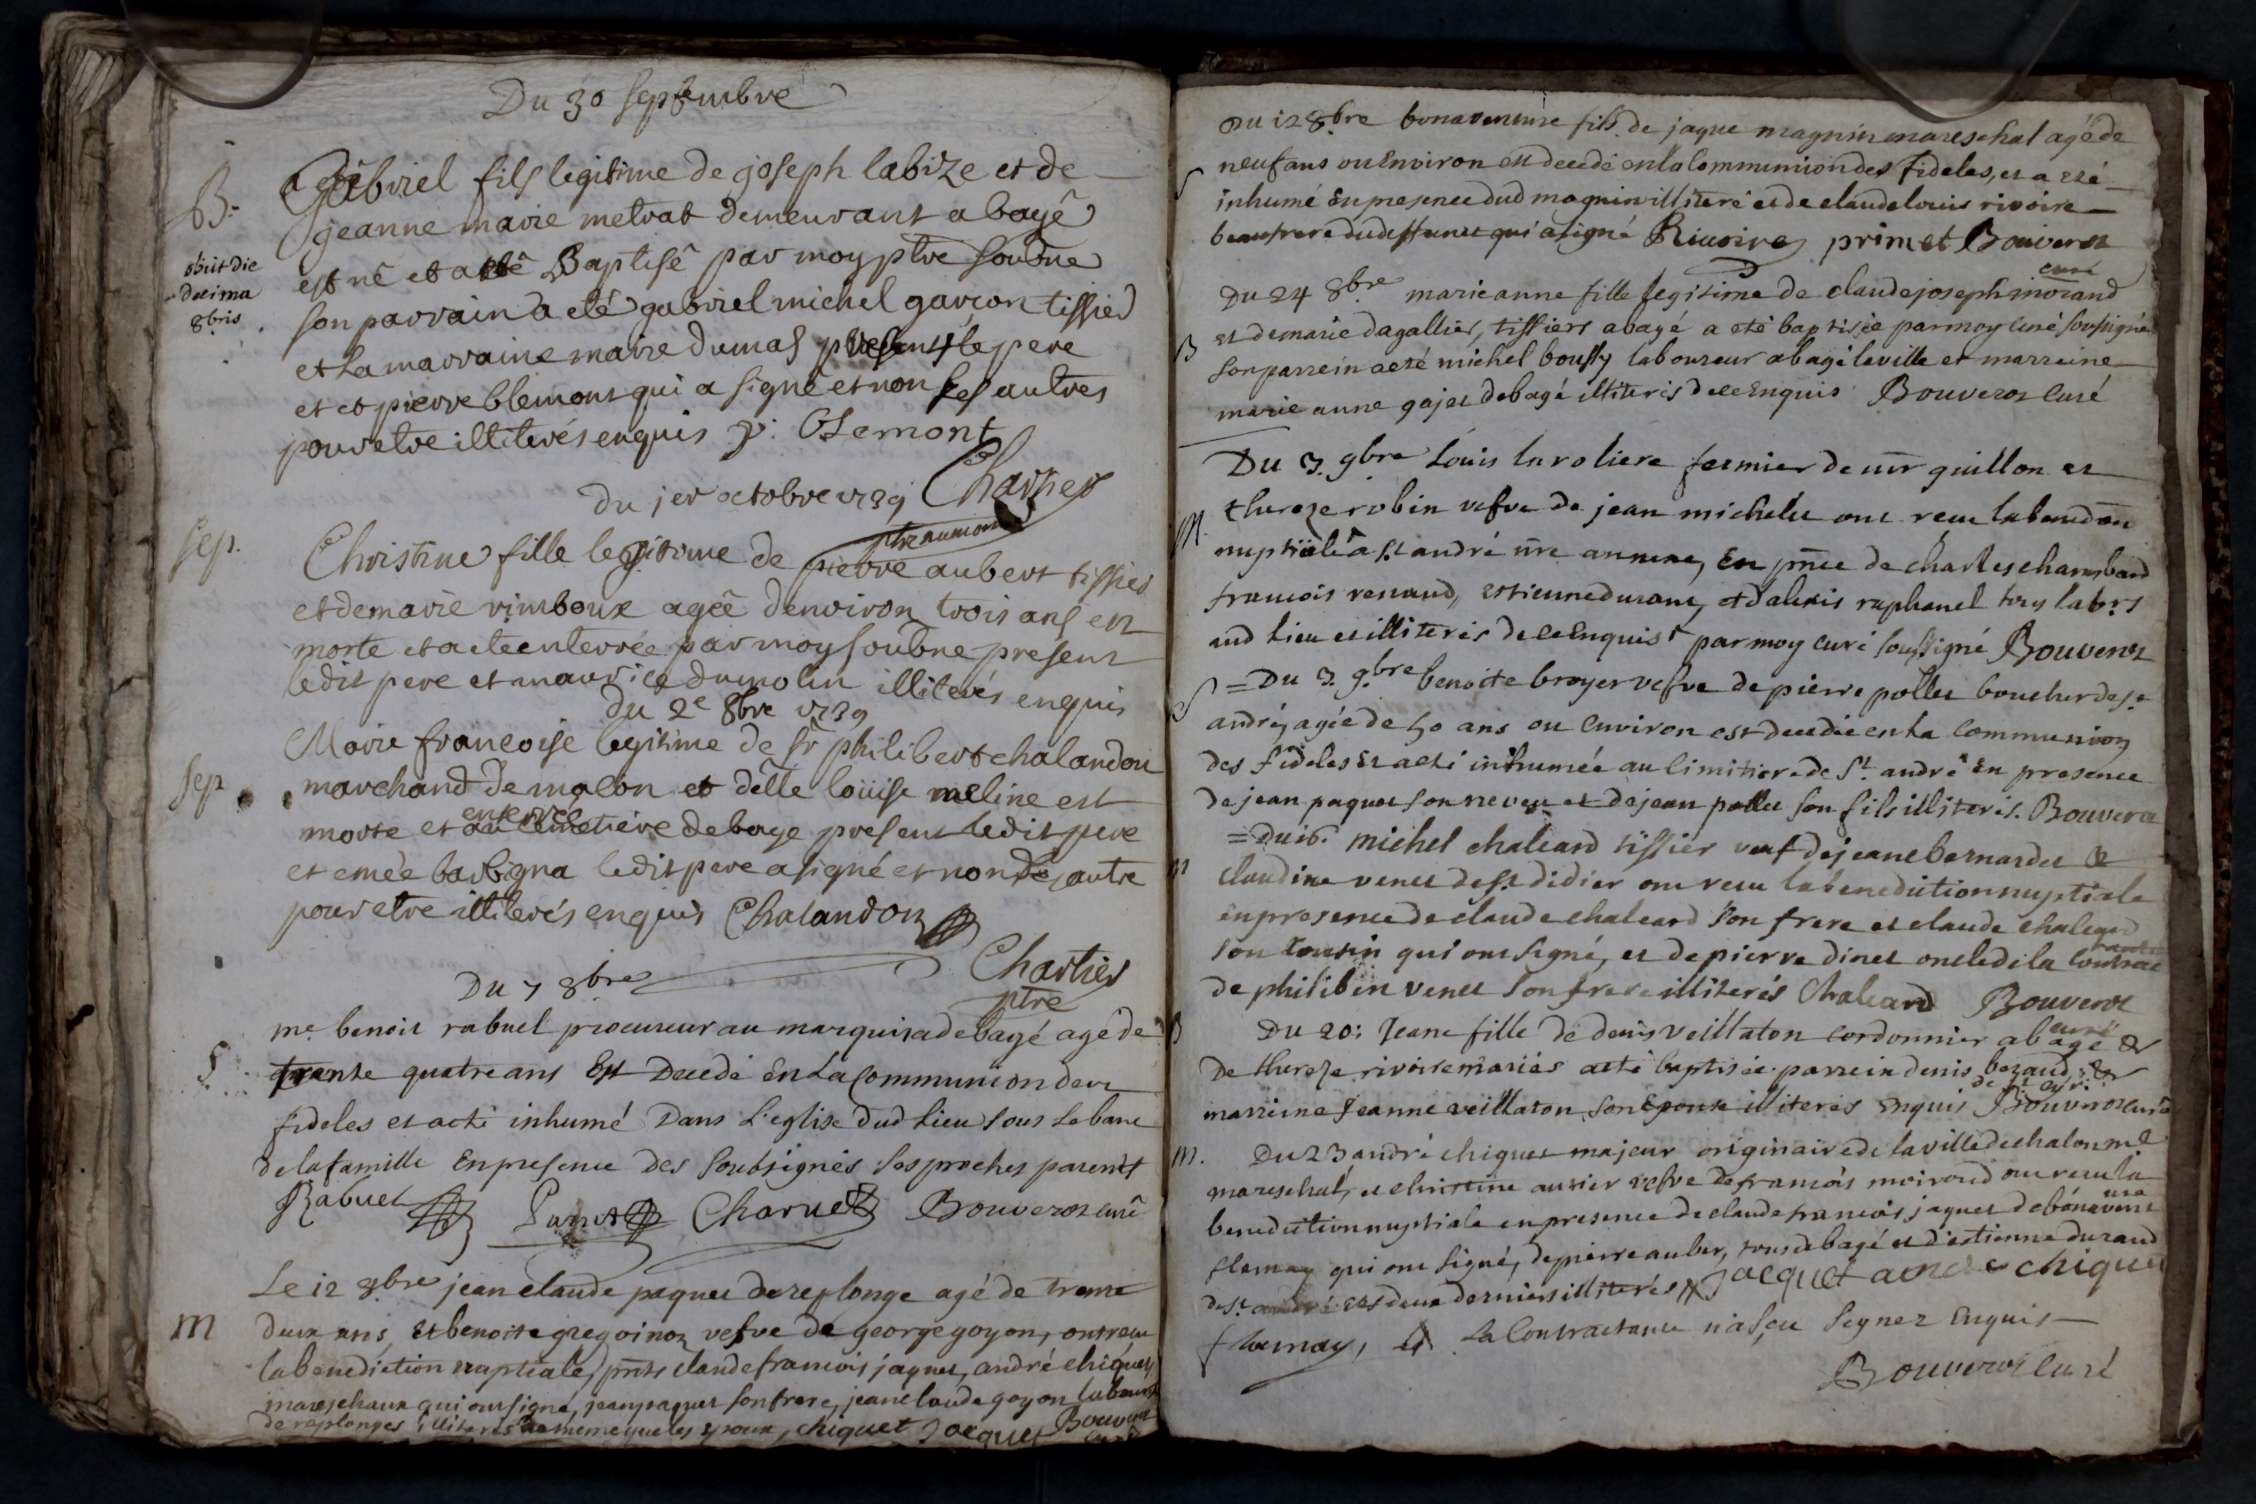 Du 30 septembre
B.
Gabriel fils legitime de joseph labize et de
jeanne marie metrat demeurant a bagé
est né et a eté Baptisé par moy ptre soubne
obiit die
decima
8bris
son parrain a eté gabriel michel garçon tissier
et La marraine marie dumas presents le pere
et et pierre blemont qui a signé et non les autres
pour etre illiterés enquis p: blemont
Chartier
ptre aumon
du jer octobre 1739
sep.
Christine fille legitime de pierre aubert tissier
et de marie rimboux agée denviron trois ans est
morte et a ete enterrée par moy soubne present
ledit pere et maurice dumolin illiterés enquis
du 2e 8bre 1739
Marie francoise legitime de sr philibert chalandon
sep
marchand de macon et delle loüise meline est
morte et enterrée au cimetiere de bage present ledit pere
et emée basbigna ledit pere a signé et non de autre
pour etre illiterés enquis Chalandon
Chartier
ptre
Du 7 8bre
me. benoit rabuel procureur au marquisa de bagé agé de
S
trente quatre ans Est Decedé En La Communion des
fideles et a eté inhumé Dans L'eglise dud Lieu sous Le banc
de la famille En presence des soubsignés ses proches parents
Rabuel Charuet Bouverot curé
Le 12 8bre jean claude paquet de replonge agé de trente
M
deux ans, Et benoite gregoinon vefve de george goyon, ont receu
la benediction nuptiale, pnts claude francois jaquet, andré chiquet
mareschaux qui ont signé, jean paquet son frere, jean claude goyon laboureur
de replonges illiterés de meme que les epoux, chiquet Jacquet Bouverot
curé
Du 12 8bre bonaventure fils de jaque magnin mareschal agé de
S
neuf ans ou Environ est decedé en la Communion des fideles, et a eté
inhumé En presence dud magnin illiteré et de claude louis rivoire
beaufrere du deffunct qui a signé Rivoire primet Bouverot
curé
Du 24 8bre marie anne fille legitime de claude joseph morand
B
et de marie dagallier, tissiers a bagé a eté baptisée par moy curé soussigné
son parrein a eté michel bouffy laboureur a bagé la ville et marreine
marie anne gajet de bagé illiterés de ce Enquis Bouverot Curé
Du 3. 9bre Louis laroliere fermier de mr guillon et
M.
thereze robin vefve de jean michelet ont receu la benedon
nuptiale a st andré nre annexe, En pnce de charles chambard
francois renaud, estienne durant, et d'alexis raphanel tous labrs
aud Lieu et illiterés de ce Enquis par moy curé soussigné Bouverot
S
= Du 3. 9bre benoite broyer vefve de pierre pollet boucher de st
andré, agée de 50 ans ou Environ est decedée en la Communion
des fideles Et a eté inhumée au cimitiere de St. andré En presence
de jean paquet son neveu et de jean pollet son fils illiterés. Bouverot
= Du 16. michel chaleard tissier veuf de jeane bernardet &
M
claudine venet de st. didier ont receu la benediction nuptiale
en presence de claude chaleard son frere et claude chaleard
son cousin qui ont signé, et de pierre dinet oncle de la Contractante
de philibert venet son frere illiterés Chaleard Bouverot
curé
B
Du 20: Jeane fille de denis veillaton cordonnier a bagé &
De thereze rivoire mariés a eté baptisée parrein denis bezaud &
de st cyr.
marreine Jeanne veillaton son Epouse illiterés Enquis Bouverot curé
M.
Du 23 andré chiquet majeur originaire de la ville de chalon me
mareschal, et christine aurier vefve de francois moiroud ont receu la
benediction nuptiale en presence de claude francois jaquet de bonaventure
flamay qui ont signé, de pierre auber, tous de bagé et d'estienne durand
de st. andré ces deux derniers illiterés Jacquet andré chiquet
flamay, La Contractante n'a sçeu signer Enquis
Bouverot Curé